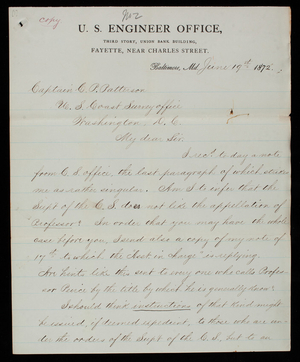 copy
U. S. ENGINEER OFFICE,
THIRD STORY, UNION BANK BUILDING,
FAYETTE, NEAR CHARLES STREET.
Baltimore, Md. June 19th, 1872
Captain C. P. Patterson
U. S. Coast Survey office
Washington, D. C.
My dear Sir
I rec'd to day a note
from C. S. office, the last paragraph of which strikes
me as rather singular. Am I to infer that the
Supt of the C. S. does not like the appellation of
Professor? In order that you may have the whole
case before you, I send also a copy of my note of
17th to which the "Asst in Charge" is replying.
for hints like this sent to every one who calls Profes-
sor Peirce by the title by which he is generally known?
I should think instructions of that kind might
be issued, if deemed expedient, to those who are un-
der the orders of the Supt of the C. S. but to an